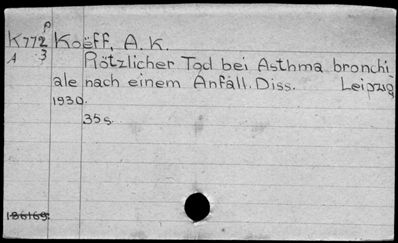 P
K772 Koëff, A. K.
A 3 Plötzlicher Tod bei Asthma bronchi
ale nach einem Anfall. Diss. Leipzig
1930.
35 s.
186169.